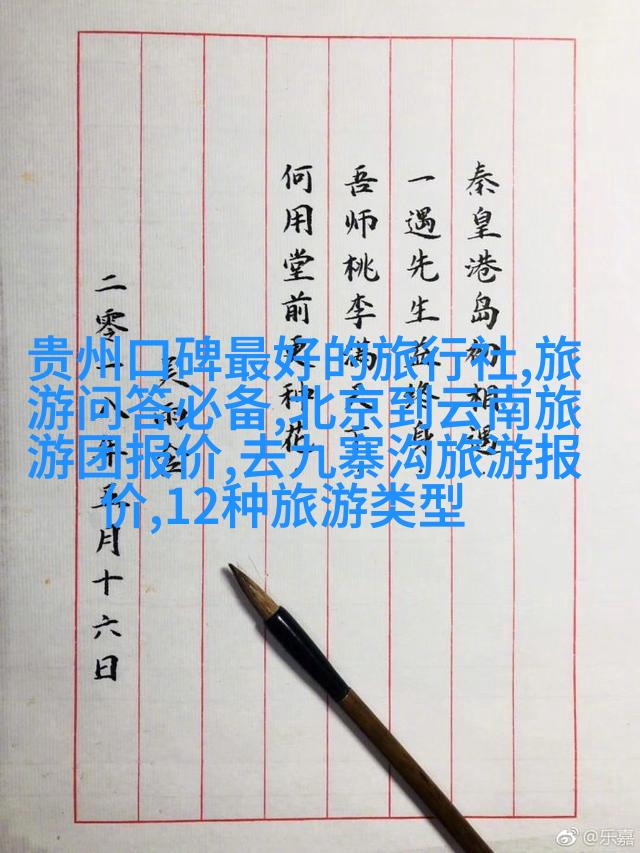 贵州口碑最好的旅行社,旅
游问答必备,北京到云南旅
游团报价,去九寨沟旅游报
价,12种旅游类型
秦皇港岛初相遇
一遇先生益终身
吾师桃李满
何用堂前更种花
吴
二零一八年五月十六日
@乐嘉